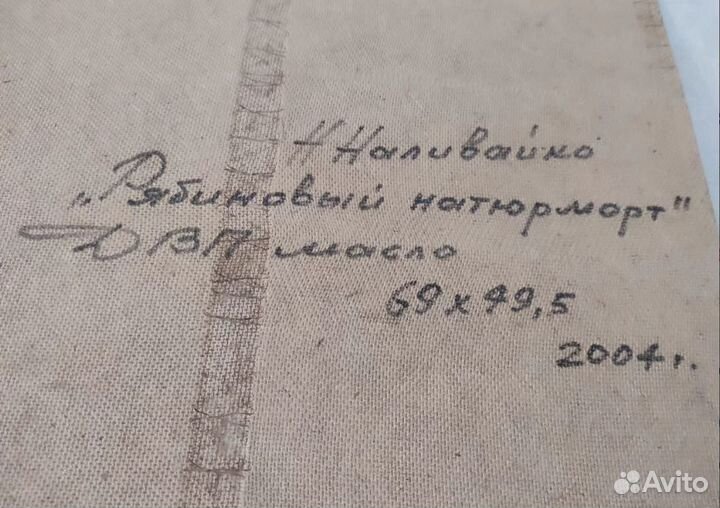 Н Наливайко
„Рябиновый натюрморт"
ДВП масло
69 x 49,5
2004 г.
Avito